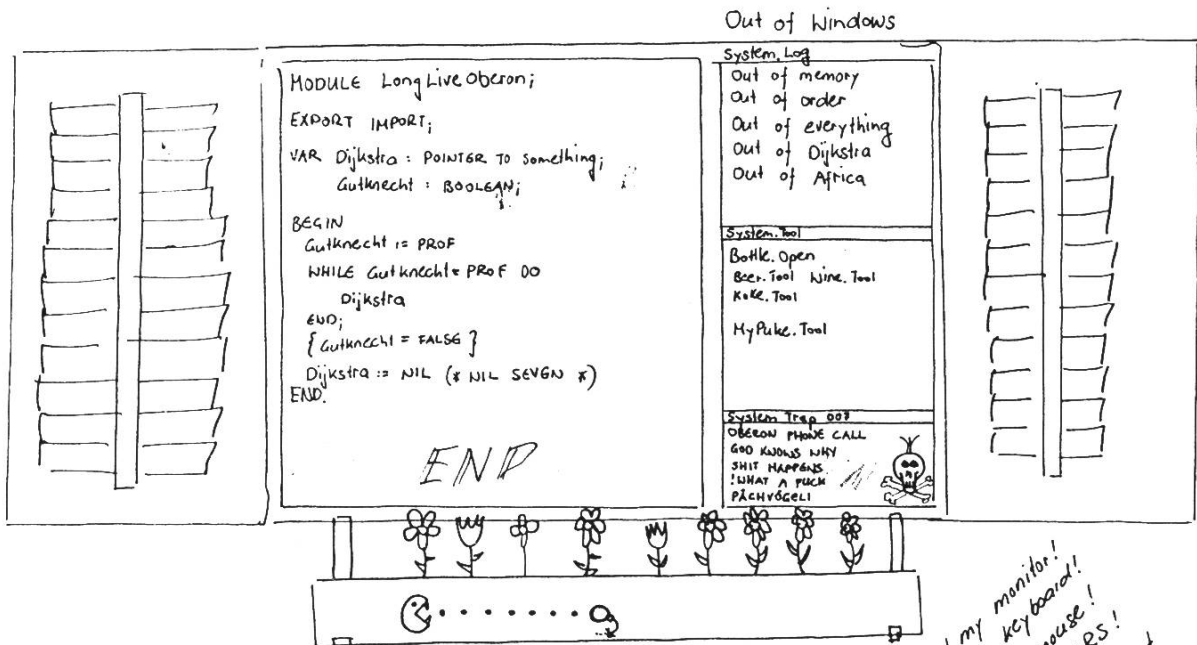 Out of Windows
MODULE LongLiveOberon;
EXPORT IMPORT;
VAR Dijkstra : POINTER TO Something;
Gutknecht : BOOLEAN;
BEGIN
Gutknecht := PROF
WHILE Gutknecht = PROF DO
Dijkstra
END;
{ Gutknecht = FALSE }
Dijkstra := NIL (* NIL SEVEN *)
END.
END
System.Log
Out of memory
Out of order
Out of everything
Out of Dijkstra
Out of Africa
System.Tool
Bottle.Open
Beer.Tool Wine.Tool
Koke.Tool
MyPuke.Tool
System Trap 007
OBERON PHONE CALL
GOD KNOWS WHY
SHIT HAPPENS
!WHAT A FUCK
PÄCHVÖGELI
my monitor!
keyboard!
mouse!